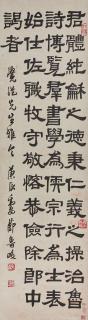 君體純龢之德秉仁義之操治魯
詩博覽羣書學為儒宗行為士表
始仕佐職牧守敬恪恭儉除郎中
謁者
先生雅